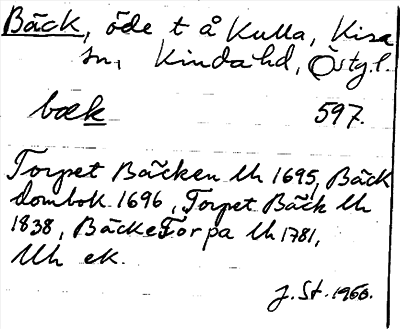 Bäck, öde t å Kulla, Kisa
sn, Kinda hd, Östg.l.
bæk 597.
Torpet Bäcken lh 1695, Bäck
dombok 1696, Torpet Bäck lh
1838, BäckeTorpa lh 1781,
lh ek.
J. St. 1960.